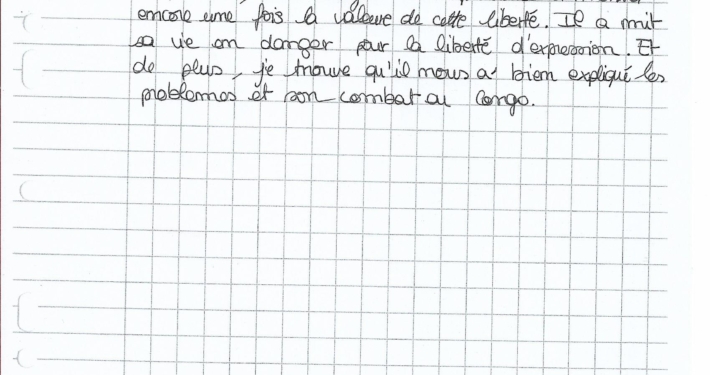 encore une fois la valeure de cette liberté. Il a mit
sa vie en danger pour la liberté d'expression. Et
de plus, je trouve qu'il nous a bien expliqué les
problemes et son combat au Congo.